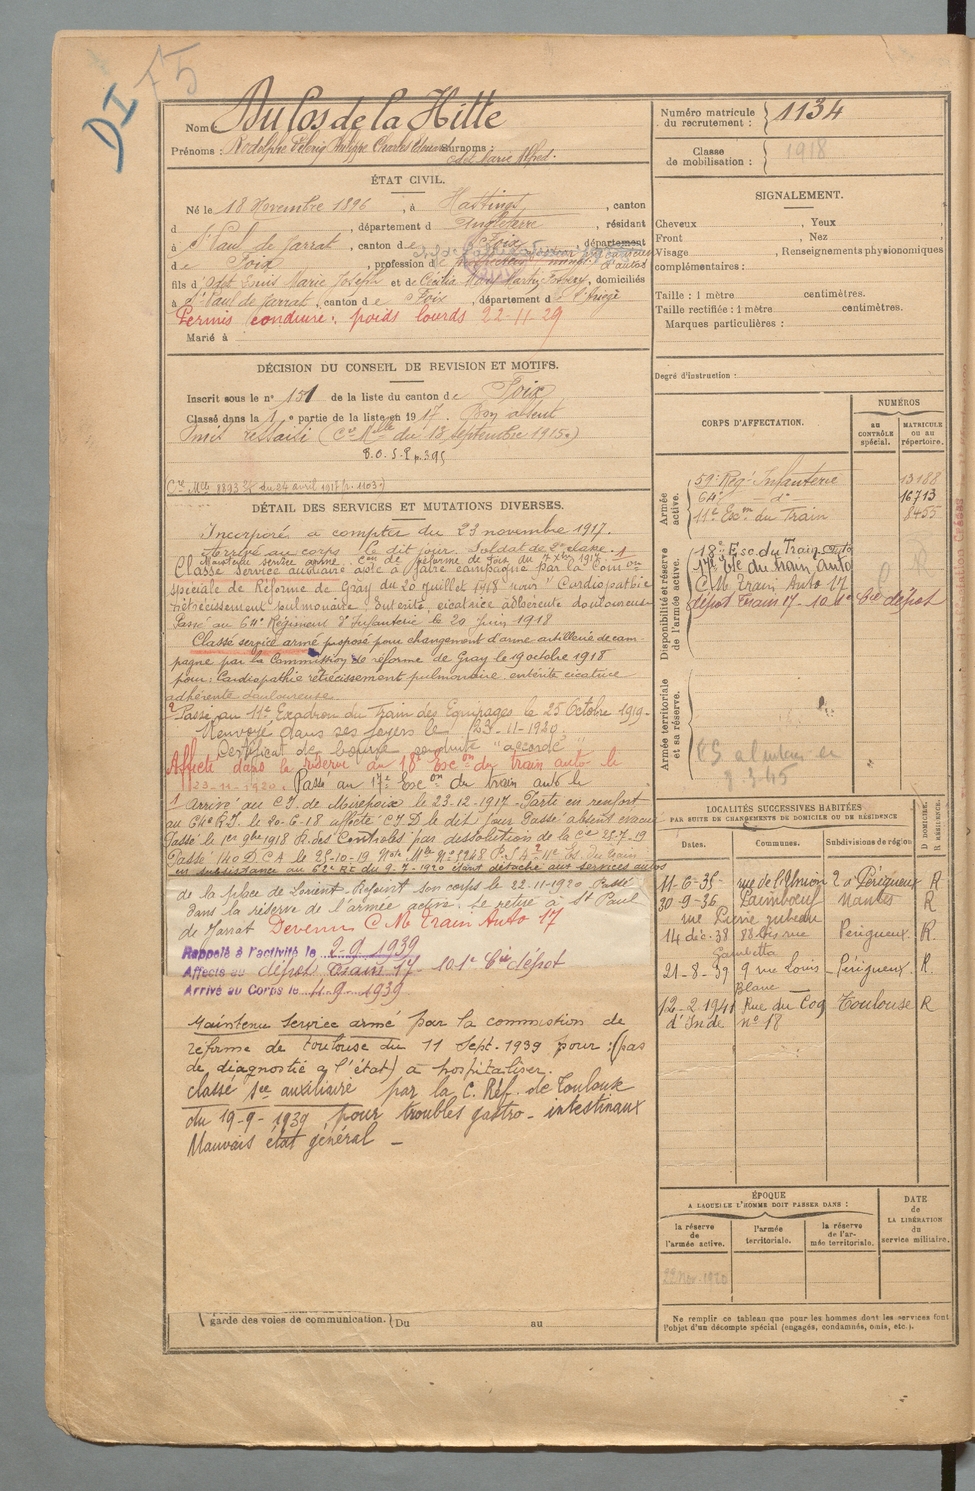 DI
F5
Nom Dulos de la Hitte
Prénoms : Rodolphe Philippe Charles
Surnoms : Odet Marie Alfred.
Numéro matricule du recrutement : 1134
Classe de mobilisation : 1918
ÉTAT CIVIL.
Né le 18 Novembre 1896, à Hastings, canton
d , département d Angleterre, résidant
à St Paul de Jarrat, canton de Foix, département
de Foix, profession d
fils d'Odet Louis Marie Joseph et de Cécilia Mary, domiciliés
à St Paul de Jarrat, canton de Foix, département de l'Ariège
Permis conduire : poids lourds 22-11-29
Marié à
SIGNALEMENT.
Cheveux , Yeux
Front , Nez
Visage , Renseignements physionomiques
complémentaires :
Taille : 1 mètre centimètres.
Taille rectifiée : 1 mètre centimètres.
Marques particulières :
Degré d'instruction :
DÉCISION DU CONSEIL DE REVISION ET MOTIFS.
Inscrit sous le n° 151 de la liste du canton de Foix
Classé dans la 1e partie de la liste en 1917. Bon absent
Omis ressaisi (Cre Mlle du 18 septembre 1915.)
B.O. S-P p.395
Cre Mlle 8893 du 24 avril 1917 p. 1103
CORPS D'AFFECTATION.
NUMÉROS
au CONTRÔLE spécial.
MATRICULE ou au répertoire.
Armée active.
59e Rég. Infanterie 13188
64e -d°- 16713
11e Escm du Train 8455
Disponibilité et réserve de l'armée active.
18e Esc. du Train auto
17e Esc du train auto
C M Train Auto 17
dépôt Train 17 - 101e Cie dépôt
Armée territoriale et sa réserve.
8-3-45
DÉTAIL DES SERVICES ET MUTATIONS DIVERSES.
Incorporé à compter du 23 novembre 1917.
Arrivé au corps le dit jour. Soldat de 2e classe. 1
Maintenu service armé. Con de réforme de Foix du 7 Xbre 1917
Classé Service auxiliaire apte à faire campagne par la Common
spéciale de Réforme de Gray du 20 juillet 1918 pour "Cardiopathie
rétrécissement pulmonaire, entérite, cicatrice adhérente douloureuse
Passé au 64e Régiment d'Infanterie le 20 Juin 1918
Classé service armé proposé pour changement d'arme artillerie de cam-
pagne par la Commission de réforme de Gray le 19 octobre 1918
pour : Cardiopathie rétrécissement pulmonaire, entérite cicatrice
adhérente douloureuse
2 Passé au 11e Escadron du Train des Equipages le 25 Octobre 1919-
Renvoyé dans ses foyers le 23-11-1920.
Certificat de bonne conduite "accordé"
Affecté dans la réserve au 18e Escon du train auto le
23-11-1920. Passé au 17e Escon du train auto le
1 Arrivé au C.I. de Mirepoix le 23-12-1917 - Parti en renfort
au 64e R.I. le 20-6-18 affecté C.I.D le dit jour Passé absent évacué
Passé le 1er 9bre 1918 R. des Contrôles par dissolution de la Cie 25-7-19
Passé 140 D.C.A le 25-10-19
en subsistance au 62e RI du 9-7-1920 étant détaché aux services autos
de la place de Lorient. Rejoint son corps le 22-11-1920 Passé
dans la réserve de l'armée active. Se retire à St Paul
de Jarrat Devenu C M Train Auto 17
Rappelé à l'activité le 2-9-1939
Affecté au dépôt Train 17 - 101e Cie dépôt
Arrivé au Corps le 11-9-1939
Maintenu service armé par la commission de
réforme de Toulouse du 11 Sept. 1939 pour : (pas
de diagnostic à l'état) à hospitaliser.
classé sce auxiliaire par la C. Réf. de Toulouse
du 19-9-1939 pour troubles gastro-intestinaux
Mauvais état général -
LOCALITÉS SUCCESSIVES HABITÉES
PAR SUITE DE CHANGEMENTS DE DOMICILE OU DE RÉSIDENCE
Dates. Communes. Subdivisions de région D DOMICILE. R RÉSIDENCE.
11-6-35- rue de l'Union 2 à Périgueux R
30-9-36 Paimboeuf Nantes R
rue Pierre
14 déc.-38 88 bis rue Gambetta Périgueux. R.
21-8-39 9 rue Louis Blanc Périgueux. R.
12-2-1941 Rue du Coq d'Inde n° 18 Toulouse R
ÉPOQUE
A LAQUELLE L'HOMME DOIT PASSER DANS :
la réserve de l'armée active.
l'armée territoriale.
la réserve de l'armée territoriale.
DATE de LA LIBÉRATION du service militaire.
22 Nov. 1920
garde des voies de communication. Du au
Ne remplir ce tableau que pour les hommes dont les services font
l'objet d'un décompte spécial (engagés, condamnés, omis, etc.).